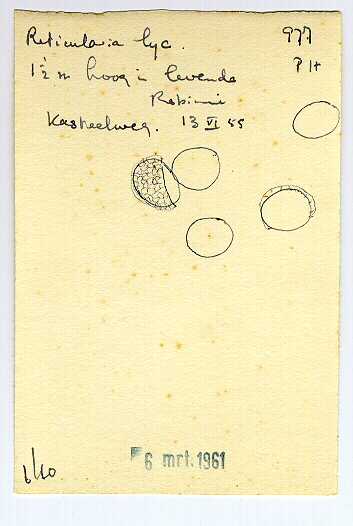 Reticularia lyc. 977
1½ m hoog in levende P H
Robinia
Kasteelweg. 13 VI 55
6 mrt. 1961